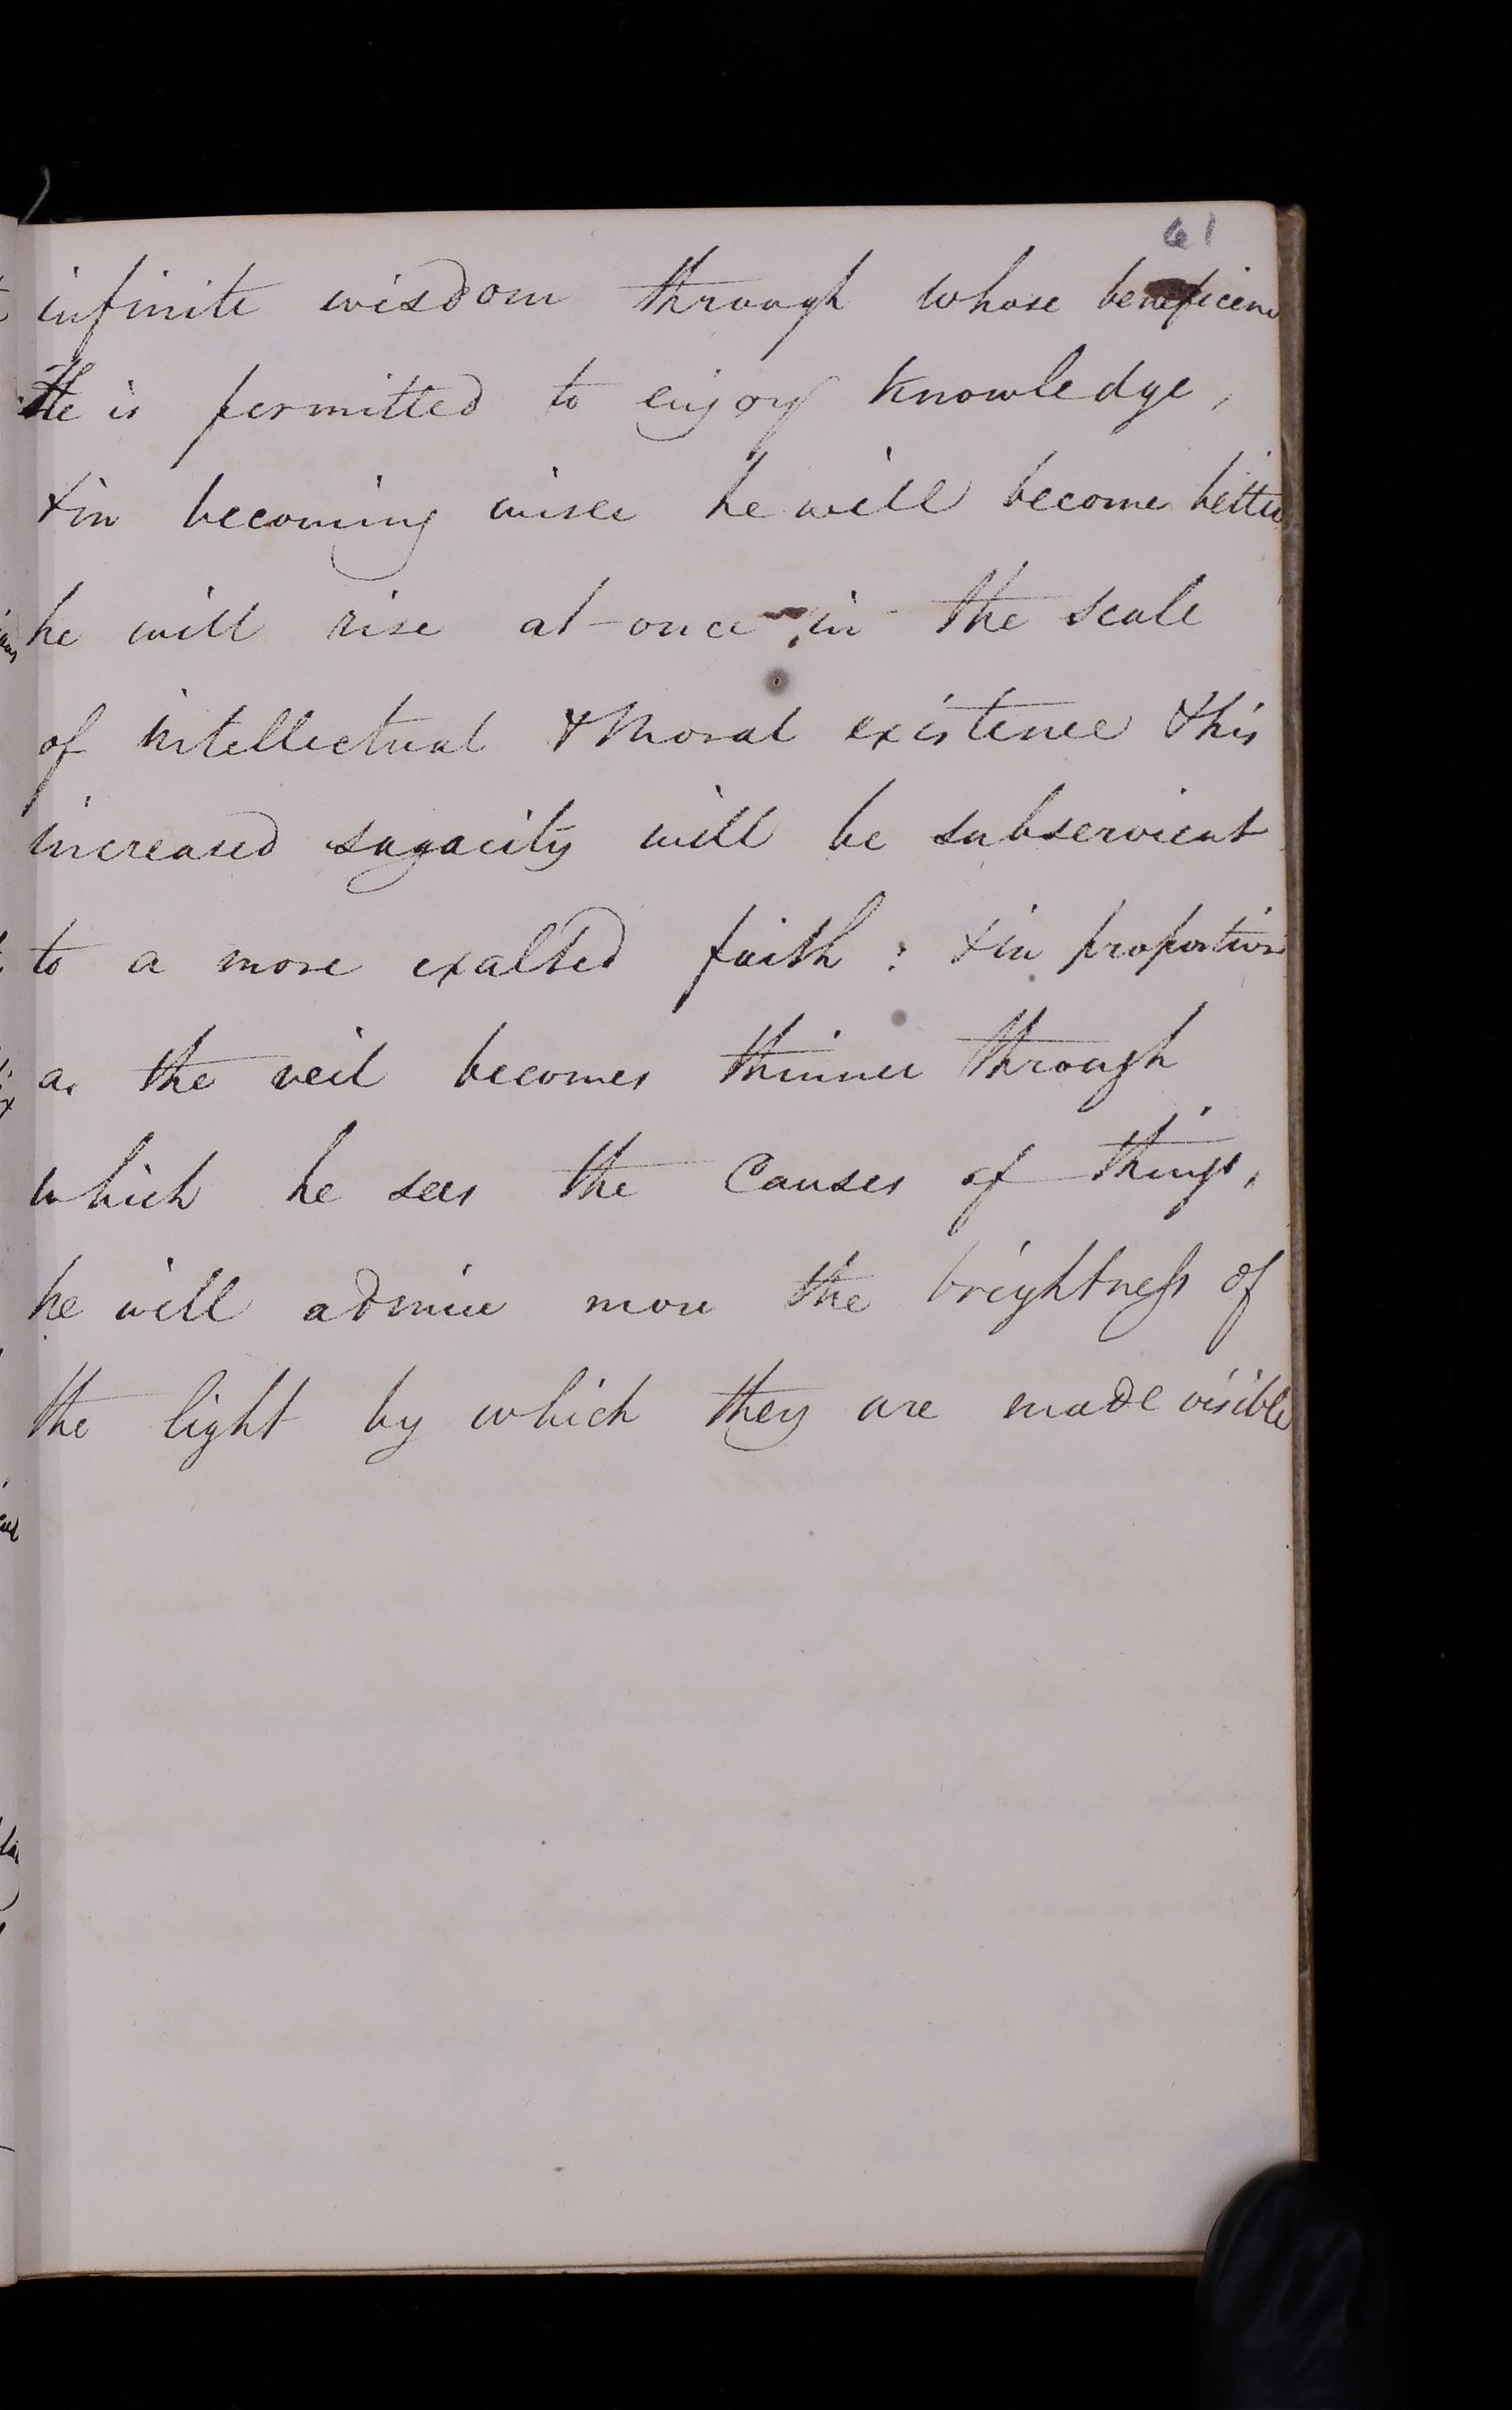 61
infinite wisdom through whose beneficence
He is permitted to enjoy Knowledge,
& in becoming wiser he will become better
he will rise at once in the scale
of intellectual & Moral existence & his
increased sagacity will be subservient
to a more exalted faith : & in proportion
as the veil becomes thinner through
which he sees the Causes of things,
he will admire more the brightness of
the light by which they are made visible